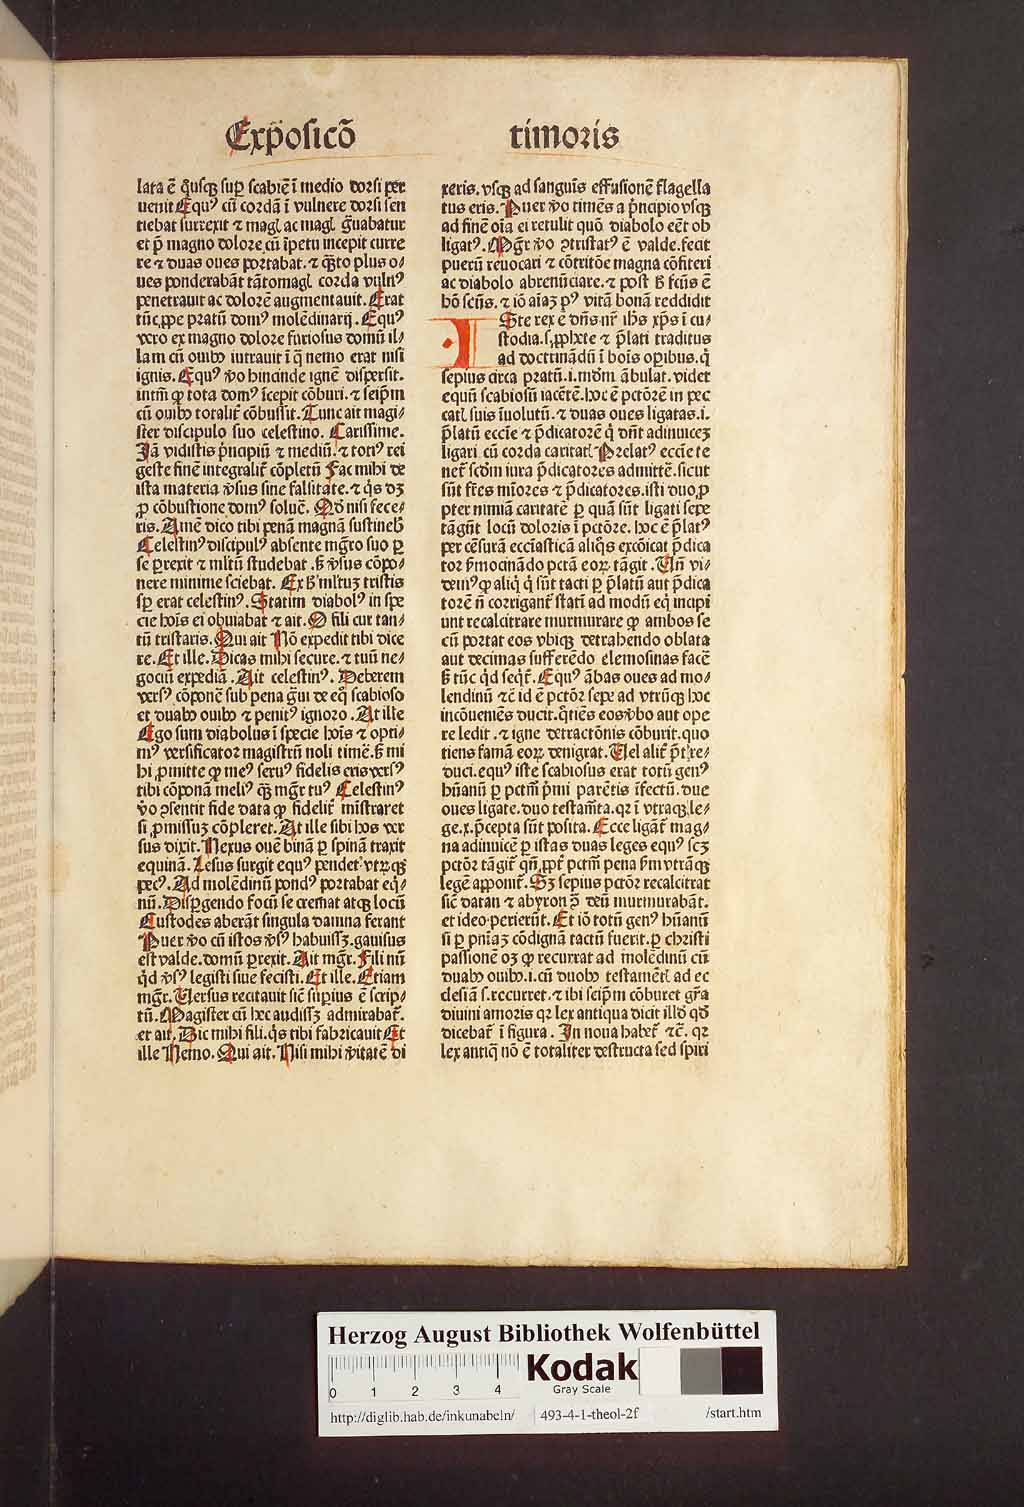 Exposicō timoris
lata ē q̄usqꝫ suꝑ scabiē ī medio dorsi per
uenit Equꝰ cū cordā ī vulnere dorsi sen
tiebat surrexit ⁊ magꝭ ac magꝭ g̃uabatur
et p̄ magno dolore cū īpetu incepit curre
re ⁊ duas oues portabat. ⁊ qꝫto plus o⸗
ues ponderabāt tātomagꝭ corda vulnꝰ
penetrauit ac dolorē augmentauit. Erat
tūc ꝓpe pratū domꝰ molēdinarij. Equꝰ
vero ex magno dolore furiosus domū il⸗
lam cū ouibꝰ iutrauit ī q̄ nemo erat nisi
ignis. Equꝰ v̄o hincinde ignē dispersit.
intm̄ ꝙ tota domꝰ īcepit cōburi. ⁊ seip̄m
cū ouibꝰ totalit̄ cōbussit. Tunc ait magi⸗
ster discipulo suo celestino. Carissime.
Jā vidistis p̄ncipiū ⁊ mediū. ⁊ totiꝰ rei
geste finē integralit̄ cōpletū Fac mihi de
ista materia v̄sus sine falsitate. ⁊ q̄s dꝫ
ꝓ cōbustione domꝰ soluē. Qd̄ nisi fece⸗
ris. Amē dico tibi penā magnā sustineb̄
Celestinꝰ discipulꝰ absente mg̃ro suo ꝑ
se ꝑrexit ⁊ mltū studebat .s̄ v̄sus cōpo⸗
nere minime sciebat. Ex h̄ mltuꝫ tristis
sꝑ erat celestinꝰ. Statim diabolꝰ in spe
cie hoīs ei obuiabat ⁊ ait. O fili cur tan⸗
tū tristaris. Qui ait Nō expedit tibi dice
re. Et ille. Dicas mihi secure. ⁊ tuū ne⸗
gociū expediā. Ait celestinꝰ. Deberem
versꝰ cōponē sub pena g̃ui de eqͦ scabioso
et duabꝰ ouibꝰ ⁊ penitꝰ ignoro. At ille
Ego sum diabolus ī specie hoīs ⁊ opti⸗
mꝰ versificator magistrū noli timē. s̄ mi
hi ꝓmitte ꝙ meꝰ seruꝰ fidelis eris versꝰ
tibi cōponā meliꝰ qꝫ mg̃r tuꝰ Celestinꝰ
v̄o ꝯsentit fide data ꝙ fidelit̄ mīstraret
si ꝓmissuꝫ cōpleret. At ille sibi hos ver
sus dixit. Nexus ouē binā ꝑ spinam traxit
equinā. Lesus surgit equꝰ pendet vtrꝫqꝫ
pecꝰ. Ad molēdinū pondꝰ portabat eqͥ⸗
nū. Disꝑgendo focū se cremat atqꝫ locū
Custodes aberāt singula damna ferant
Puer v̄o cū istos v̄sꝰ habuissꝫ. gauisus
est valde. domū ꝑrexit. Ait mg̃r. Fili nū
qͥd v̄sꝰ legisti siue fecisti. Et ille. Etiam
mg̃r. Versus recitauit sic̄ suꝑius ē scrip⸗
tū. Magister cū hec audissꝫ admirabat̄.
et ait. Dic mihi fili. q̄s tibi fabricauit Et
ille Nemo. Qui ait. Nisi mihi v̄itatē di
xeris. vsqꝫ ad sanguīs effusionē flagella
tus eris. Puer v̄o timēs a p̄ncipio vsqꝫ
ad finē oīa ei retulit quō diabolo eēt ob
ligatꝰ. Mg̃r v̄o ꝯtristatꝰ ē valde. fecit
puerū reuocari ⁊ cōtritōe magna cōfiteri
ac diabolo abrenūciare. ⁊ post h̄ fcūs ē
hō scūs. ⁊ iō aīaꝫ pꝰ vitā bonā reddidit
ISte rex ē dn̄s nr̄ ihs̄ xp̄s ī cu⸗
stodia .s. ꝓplxte ⁊ p̄lati traditus
ad doctrinādū ī bois opibus. qͥ
sepius circa pratū .i. mdm̄ ābulat. videt
equū scabiosū iacētē. hoc ē pctōrē in pec
catꝭ suis īuolutū. ⁊ duas oues ligatas .i.
p̄latū eccīe ⁊ p̄dicatorē qͥ dn̄t adinuiceꝫ
ligari cū corda caritatꝭ Prelatꝰ eccīe te
net̄ scdm̄ iura p̄dicatores admittē. sicut
sūt fr̄es mīores ⁊ p̄dicatores. isti duo, ꝓ
pter nimiā caritatē ꝑ quā sūt ligati sepe
tāgūt locū doloris ī pctōre. hoc ē p̄latꝰ
per cēsurā eccīasticā aliqͦs excōicat p̄dica
tor ꝑmocinādo pctā eoꝝ tāgit. Vn̄ vi⸗
demꝰ ꝙ aliqͥ qͥ sūt tacti ꝑ p̄latū aut p̄dica
torē n̄ corrigant̄ statī ad modū eqͥ incipi
unt recalcitrare murmurare ꝙ ambos se
cū portat eos vbiqꝫ detrahendo oblata
aut decimas sufferēdo elemosinas facē
h̄ tūc qd̄ seqͥt̄. Equꝰ ābas oues ad mo⸗
lendinū ⁊c̄ id ē pctōr sepe ad vtrūqꝫ hoc
incōueniēs ducit. qͦtiēs eos v̄bo aut ope
re ledit. ⁊ igne detractōnis cōburit. quo
tiens famā eoꝝ denigrat. Vel alit̄ p̄t re⸗
duci. equꝰ iste scabiosus erat totū genꝰ
hūanū ꝑ pctm̄ p̄mi parētis īfectū. due
oues ligate. duo testam̄ta. qr ī vtraqꝫ le⸗
ge .x. p̄cepta sūt posita. Ecce ligāt̄ mag⸗
na adinuicē ꝑ istas duas leges equꝰ scꝫ
pctōr tāgit̄ qn̄ ꝓpt̄ pctm̄ pena s̄m vtrāqꝫ
legē apponit̄. Sꝫ sepius pctōr recalcitrat
sic̄ datan ⁊ abyron ꝓ deū murmurabāt.
et ideo perierūt. Et iō totū genꝰ hūanū
si ꝑ pn̄iaꝫ cōdignā tactū fuerit. ꝑ christi
passionē oꝫ ꝙ recurrat ad molēdinū cū
duabꝰ ouibꝰ .i. cū duobꝰ testamētꝭ ad ec
clesiā s. recurret. ⁊ ibi seip̄m cōburet gr̃a
diuini amoris qr lex antiqua dicit illd̄ qd̄
dicebat̄ ī figura. In noua habet̄ ⁊c̄. qr
lex antiqͣ nō ē totaliter destructa sed spiri
Herzog August Bibliothek Wolfenbüttel
0 1 2 3 4
Kodak
Gray Scale
http://diglib.hab.de/inkunabeln/ 493-4-1-theol-2f /start.htm